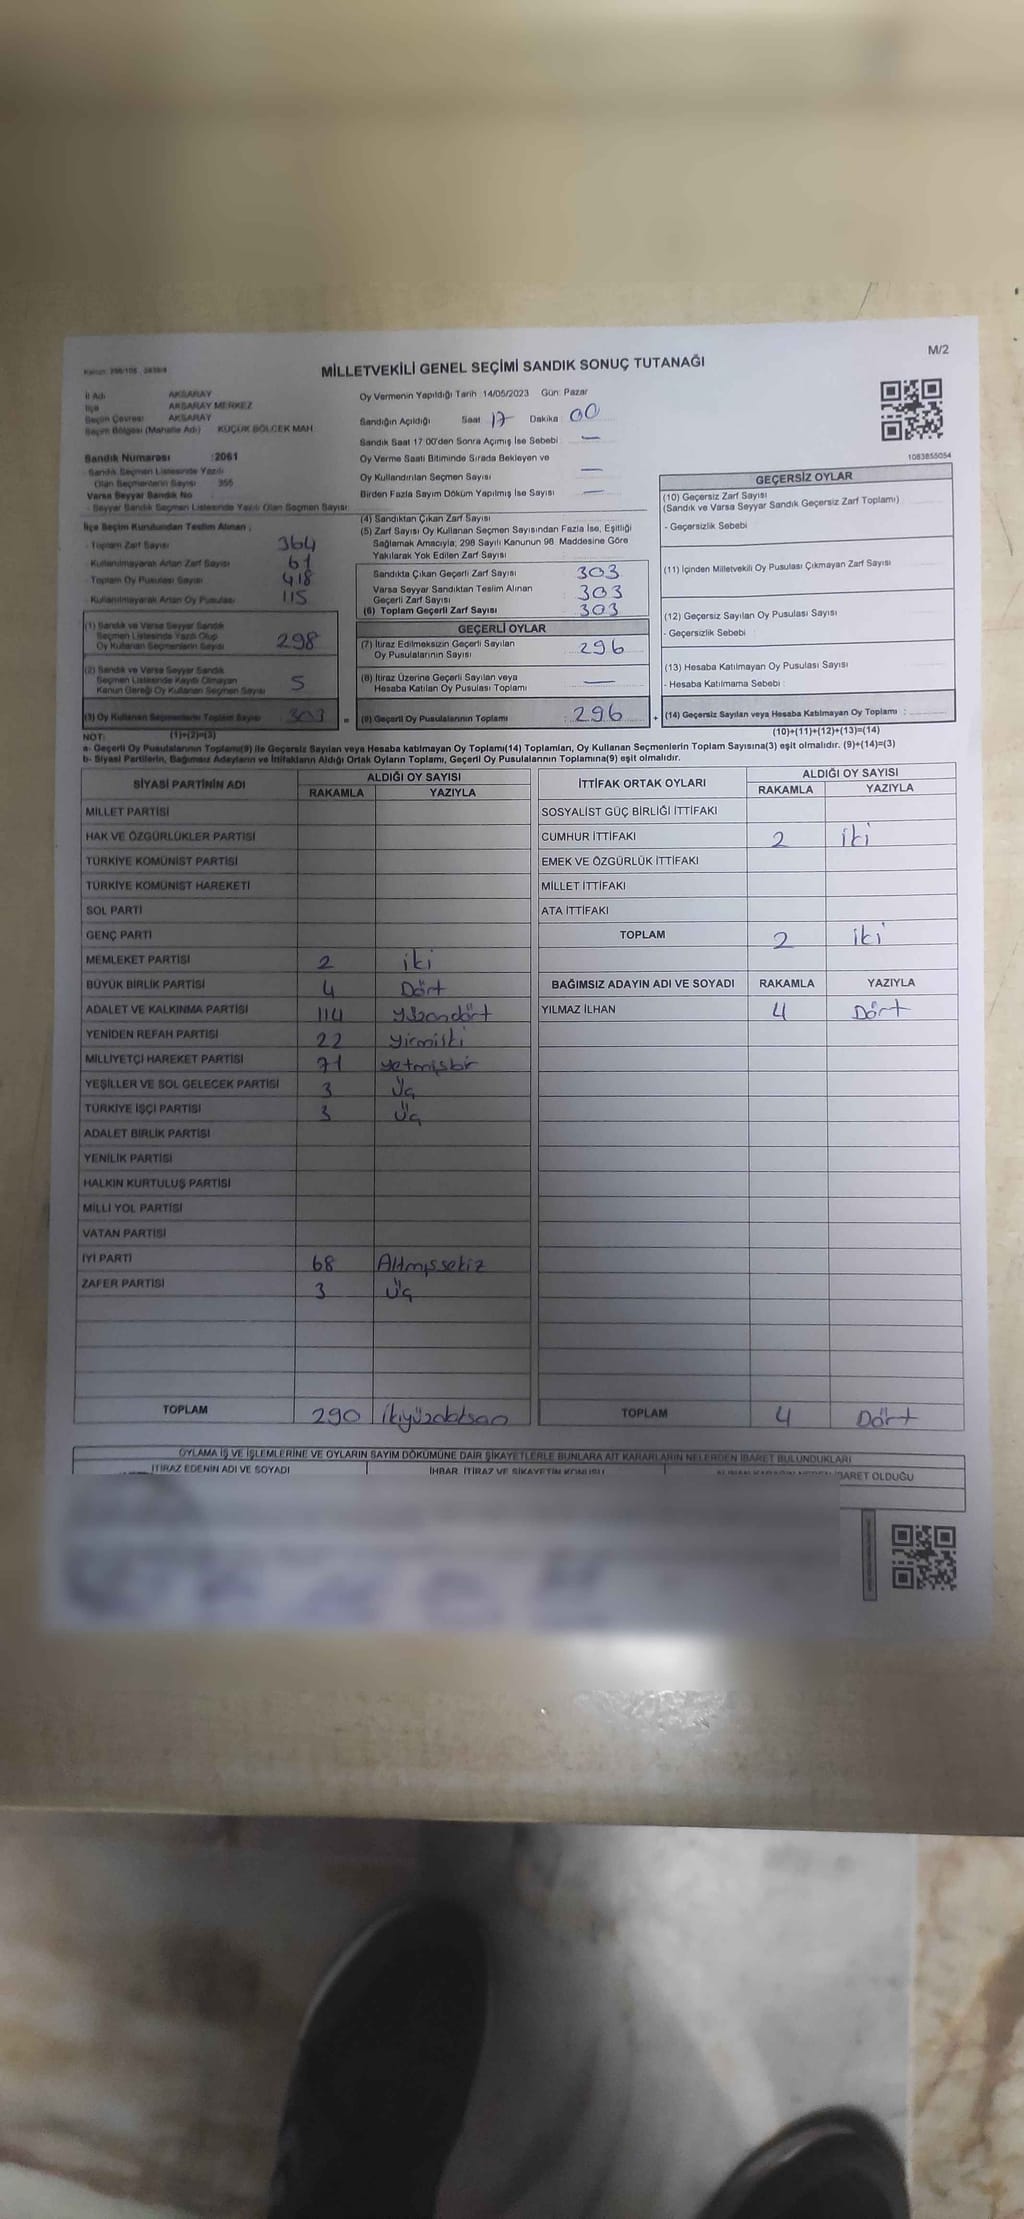 M/2
MİLLETVEKİLİ GENEL SEÇİMİ SANDIK SONUÇ TUTANAĞI
İl Adı AKSARAY
İlçe AKSARAY MERKEZ
Seçim Çevresi AKSARAY
Seçim Bölgesi (Mahalle Adı) KÜÇÜK BÖLCEK MAH.
Sandık Numarası :2061
Sandık Seçmen Listesinde Yazılı
Olan Seçmenlerin Sayısı 355
Varsa Seyyar Sandık No
- Seyyar Sandık Seçmen Listesinde Yazılı Olan Seçmen Sayısı
Oy Vermenin Yapıldığı Tarih :14/05/2023 Gün: Pazar
Sandığın Açıldığı Saat 17 Dakika 00
Sandık Saat 17:00'den Sonra Açımış İse Sebebi : —
Oy Verme Saati Bitiminde Sırada Bekleyen ve
Oy Kullandırılan Seçmen Sayısı —
Birden Fazla Sayım Döküm Yapılmış İse Sayısı —
1083855054
İlçe Seçim Kurulundan Teslim Alınan ;
- Toplam Zarf Sayısı 364
- Kullanılmayarak Artan Zarf Sayısı 61
- Toplam Oy Pusulası Sayısı 418
- Kullanılmayarak Artan Oy Pusulası 115
(1) Sandık ve Varsa Seyyar Sandık
Seçmen Listesinde Yazılı Olup
Oy Kullanan Seçmenlerin Sayısı 298
(2) Sandık ve Varsa Seyyar Sandık
Seçmen Listesinde Kayıtlı Olmayan
Kanun Gereği Oy Kullanan Seçmen Sayısı 5
(3) Oy Kullanan Seçmenlerin Toplam Sayısı 303 =
(4) Sandıktan Çıkan Zarf Sayısı
(5) Zarf Sayısı Oy Kullanan Seçmen Sayısından Fazla İse, Eşitliği
Sağlamak Amacıyla; 298 Sayılı Kanunun 98. Maddesine Göre
Yakılarak Yok Edilen Zarf Sayısı
Sandıkta Çıkan Geçerli Zarf Sayısı 303
Varsa Seyyar Sandıktan Teslim Alınan
Geçerli Zarf Sayısı 303
(6) Toplam Geçerli Zarf Sayısı 303
GEÇERLİ OYLAR
(7) İtiraz Edilmeksizin Geçerli Sayılan
Oy Pusulalarının Sayısı 296
(8) İtiraz Üzerine Geçerli Sayılan veya
Hesaba Katılan Oy Pusulası Toplamı —
(9) Geçerli Oy Pusulalarının Toplamı 296 +
GEÇERSİZ OYLAR
(10) Geçersiz Zarf Sayısı
(Sandık ve Varsa Seyyar Sandık Geçersiz Zarf Toplamı)
- Geçersizlik Sebebi
(11) İçinden Milletvekili Oy Pusulası Çıkmayan Zarf Sayısı
(12) Geçersiz Sayılan Oy Pusulası Sayısı
- Geçersizlik Sebebi
(13) Hesaba Katılmayan Oy Pusulası Sayısı
- Hesaba Katılmama Sebebi :
(14) Geçersiz Sayılan veya Hesaba Katılmayan Oy Toplamı :
NOT: (1)+(2)=(3) (10)+(11)+(12)+(13)=(14)
a- Geçerli Oy Pusulalarının Toplamı(9) ile Geçersiz Sayılan veya Hesaba katılmayan Oy Toplamı(14) Toplamları, Oy Kullanan Seçmenlerin Toplam Sayısına(3) eşit olmalıdır. (9)+(14)=(3)
b- Siyasi Partilerin, Bağımsız Adayların ve İttifakların Aldığı Ortak Oyların Toplamı, Geçerli Oy Pusulalarının Toplamına(9) eşit olmalıdır.
SİYASİ PARTİNİN ADI ALDIĞI OY SAYISI
RAKAMLA YAZIYLA
MİLLET PARTİSİ
HAK VE ÖZGÜRLÜKLER PARTİSİ
TÜRKİYE KOMÜNİST PARTİSİ
TÜRKİYE KOMÜNİST HAREKETİ
SOL PARTİ
GENÇ PARTİ
MEMLEKET PARTİSİ 2 iki
BÜYÜK BİRLİK PARTİSİ 4 Dört
ADALET VE KALKINMA PARTİSİ 114
YENİDEN REFAH PARTİSİ 22 yirmiiki
MİLLİYETÇİ HAREKET PARTİSİ 71 yetmişbir
YEŞİLLER VE SOL GELECEK PARTİSİ 3 Üç
TÜRKİYE İŞÇİ PARTİSİ 3 Üç
ADALET BİRLİK PARTİSİ
YENİLİK PARTİSİ
HALKIN KURTULUŞ PARTİSİ
MİLLİ YOL PARTİSİ
VATAN PARTİSİ
İYİ PARTİ 68 Altmışsekiz
ZAFER PARTİSİ 3 Üç
TOPLAM 290 ikiyüzdoksan
İTTİFAK ORTAK OYLARI ALDIĞI OY SAYISI
RAKAMLA YAZIYLA
SOSYALİST GÜÇ BİRLİĞİ İTTİFAKI
CUMHUR İTTİFAKI 2 iki
EMEK VE ÖZGÜRLÜK İTTİFAKI
MİLLET İTTİFAKI
ATA İTTİFAKI
TOPLAM 2 iki
BAĞIMSIZ ADAYIN ADI VE SOYADI RAKAMLA YAZIYLA
YILMAZ İLHAN 4 Dört
TOPLAM 4 Dört
OYLAMA İŞ VE İŞLEMLERİNE VE OYLARIN SAYIM DÖKÜMÜNE DAİR ŞİKAYETLERLE BUNLARA AİT KARARLARIN NELERDEN İBARET BULUNDUKLARI
İTİRAZ EDENİN ADI VE SOYADI İHBAR, İTİRAZ VE ŞİKAYETİN KONUSU İBARET OLDUĞU